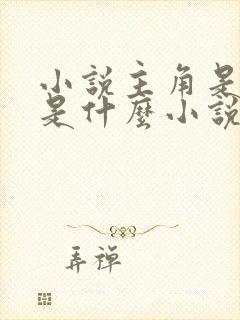 小說主角是
是什麼小說
弄禪